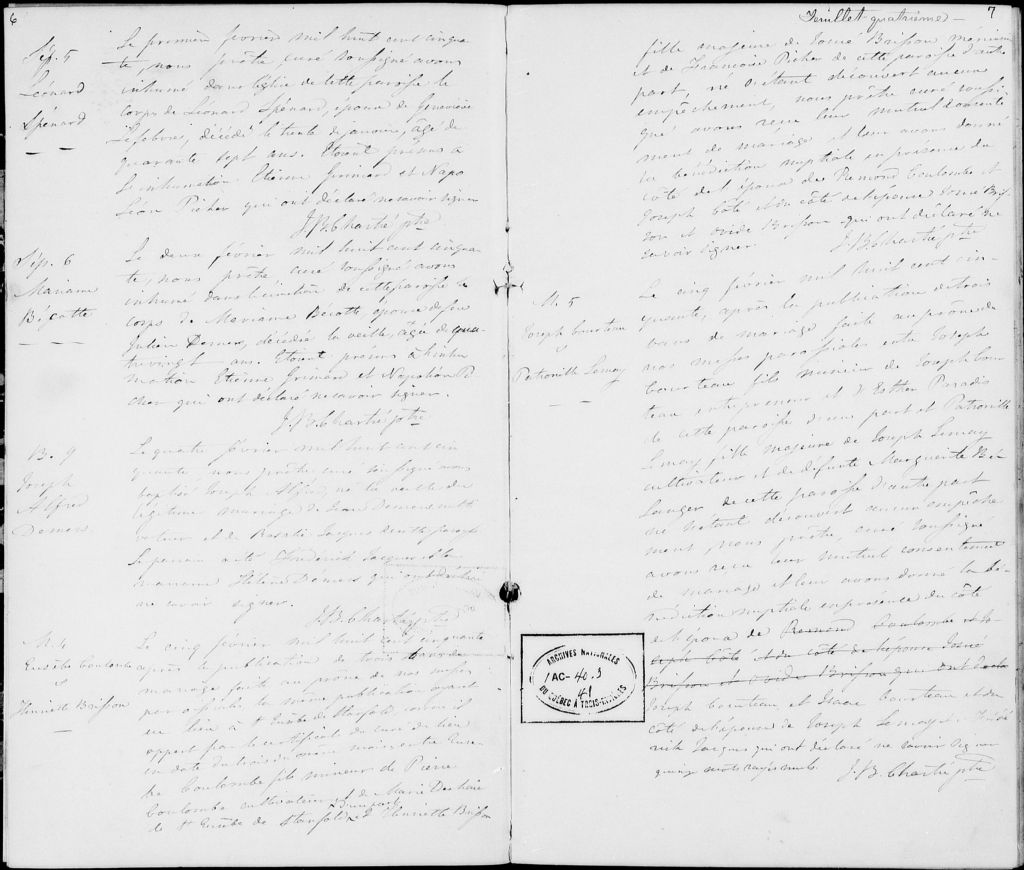 6
Sép. 5
Léonard
Spénard
Le premier février mil huit cent cinquan-
te, nous prêtre curé soussigné avons
inhumé dans l'église de cette paroisse le
corps de Léonard Spénard, époux de Geneviève
Lefebvre, décédé le trente de janvier, âgé de
quarante sept ans. Etoient présens à
l'inhumation Etienne Grimard et Napo
léon Picher qui ont déclaré ne savoir signer
J. B. Chartré ptre
Sép. 6
Mariane
Bécotte
Le deux février mil huit cent cinquan-
te, nous prêtre curé soussigné avons
inhumé dans le cimetière de cette paroisse le
corps de Mariane Bécotte, épouse de feu
Julien Demers, décédée la veille, âgée de qua-
trevingt ans. Etoient présens à l'inhu
mation Etienne Grimard et Napoléon Pi
cher qui ont déclaré ne savoir signer.
J. B. Chartré ptre
B. 9
Joseph
Alfred
Demers
Le quatre février mil huit cent cin
quante nous prêtre curé soussigné avons
baptisé Joseph Alfred, né la veille du
légitime mariage de Demers
et de Rosalie Jacques de cette paroisse
Le parrain a été Frédérick Jacques et la
marraine Hélène Demers qui ont déclaré
ne savoir signer.
J. B. Chartré ptre
M. 4
Eusèbe Coulombe
Henriette Brisson
Le cinq février mil huit cent cinquante
après la publication de trois bans de
mariage faite au prône de nos messes
paroissiales la même publication ayant
eu lieu à St Eusèbe de Stanfold, comme il
appert par le certificat du curé du lieu
en date du trois du même mois, entre Eusè-
be Coulombe fils mineur de Pierre
Coulombe cultivateur et de Marie Deshaie
de St Eusèbe de Stanfold et Henriette Brisson
Feuillet quatrième —
7
fille majeure de Josué Brisson menuisier
et de Françoise Picher de cette paroisse d'autre
part, né s'étant découvert aucune
empêchement, nous prêtre curé soussi-
gné avons reçu leur mutuel consente
ment de mariage et leur avons donné
la bénédiction nuptiale en présence du
côté de l'époux de Remond Coulombe et
Joseph Côté et du côté de l'épouse Josué Bris-
son et Ovide Brisson qui ont déclaré ne
savoir signer
J. B. Chartré ptre
M. 5
Joseph Courteau
Petronille Lemay
Le cinq février mil huit cent cin-
quante, après la publication de trois
bans de mariage faite au prône de
nos messes paroissiales entre Joseph
Courteau fils mineur de Joseph Cour-
teau entrepreneur et d'Esther Paradis
de cette paroisse d'une part et Petronille
Lemay fille majeure de Joseph Lemay
cultivateur et de défunte Marguerite Bé-
langer de cette paroisse d'autre part
ne s'étant découvert aucun empêche
ment, nous prêtre, curé soussigné
avons reçu leur mutuel consentement
de mariage et leur avons donné la bé-
nédiction nuptiale en présence du côté
de l'époux de Remond Coulombe et Jo-
seph Côté et du côté de l'épouse Josué
Brisson et Ovide Brisson qui ont décla
Joseph Courteau et Isaac Courteau et du
côté de l'épouse de Joseph Lemay et
Jacques qui ont déclaré ne savoir signer
quinze mots rayés nuls.
J. B. Chartré ptre
ARCHIVES NATIONALES
AC- 40.3
41
DU QUÉBEC À TROIS-RIVIÈRES